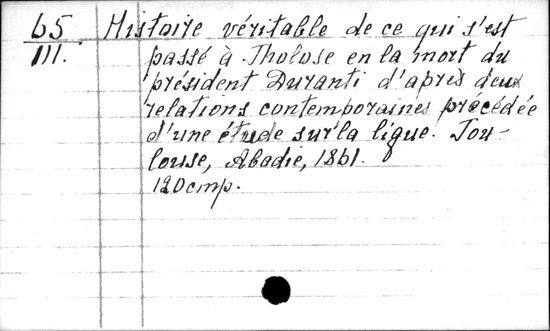 65 Histoire véritable de ce qui s'est
III. passé à Tholose en la mort du
président Duranti d'après deux
relations contemporaines précédée
d'une étude sur la ligue. Tou-
louse, Abadie, 1861.
120cmp.